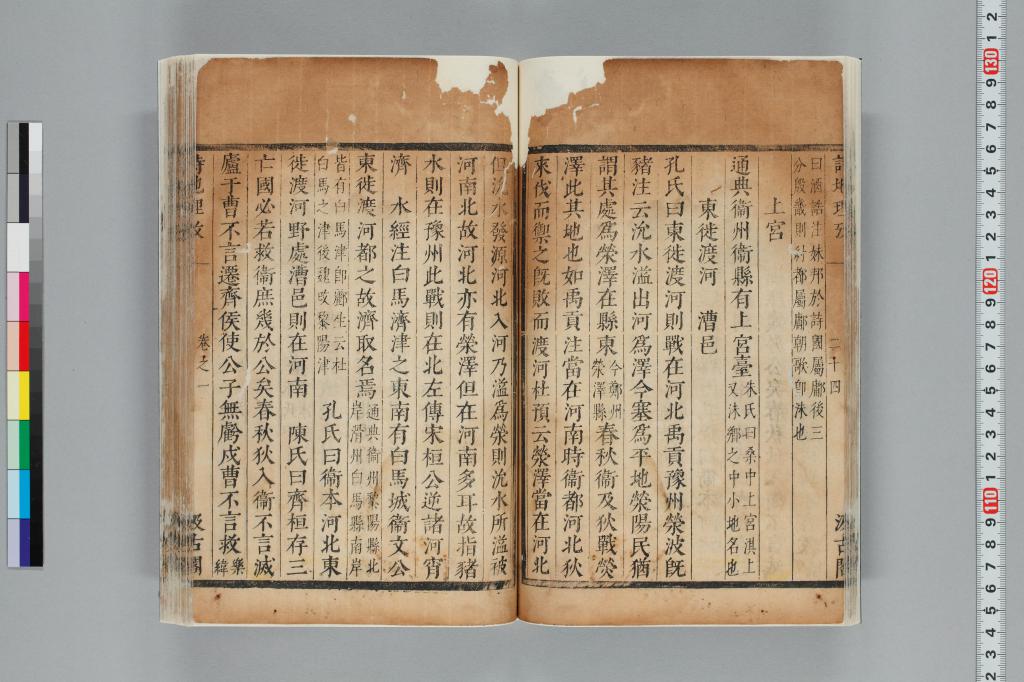 詩地理攷 二十四 汲古閣
曰酒誥注妹邦於詩國屬鄘後三
分殷畿則紂都屬鄘朝歌卽沬也
上宮
通典衞州衞縣有上宮臺
朱氏曰桑中上宮淇上
又沬鄉之中小地名也
東徙渡河 漕邑
孔氏曰東徙渡河則戰在河北禹貢豫州滎波旣
豬注云沇水溢出河爲澤今塞爲平地滎陽民猶
謂其處爲滎澤在縣東
今鄭州
滎澤縣
春秋衞及狄戰熒
澤此其地也如禹貢注當在河南時衞都河北狄
來伐而禦之旣敗而渡河杜預云熒澤當在河北
但沇水發源河北入河乃溢爲滎則沇水所溢被
河南北故河北亦有滎澤但在河南多耳故指豬
水則在豫州此戰則在北左傳宋桓公逆諸河宵
濟 水經注白馬濟津之東南有白馬城衞文公
東徙渡河都之故濟取名焉
通典衞州黎陽縣北
岸滑州白馬縣南岸
皆有白馬津卽酈生云杜
白馬之津後魏改黎陽津
孔氏曰衞本河北東
徙渡河野處漕邑則在河南 陳氏曰齊桓存三
亡國必若救衞庶幾於公矣春秋狄入衞不言滅
廬于曹不言遷齊侯使公子無虧戍曹不言救
樂
緯
詩地理攷 卷之一 汲古閣
2 1 130 9 8 7 6 5 4 3 2 1 120 9 8 7 6 5 4 3 2 1 110 9 8 7 6 5 4 3 2